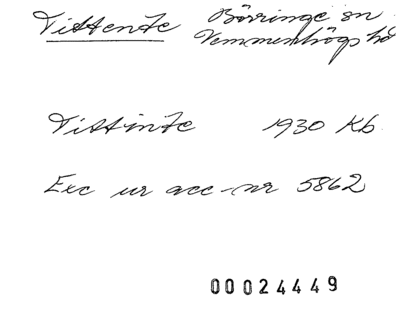 Tittente Börringe sn
Vemmenhögs hd
Tittinte 1930 Kb.
Exc ur acc-nr 5862
00024449